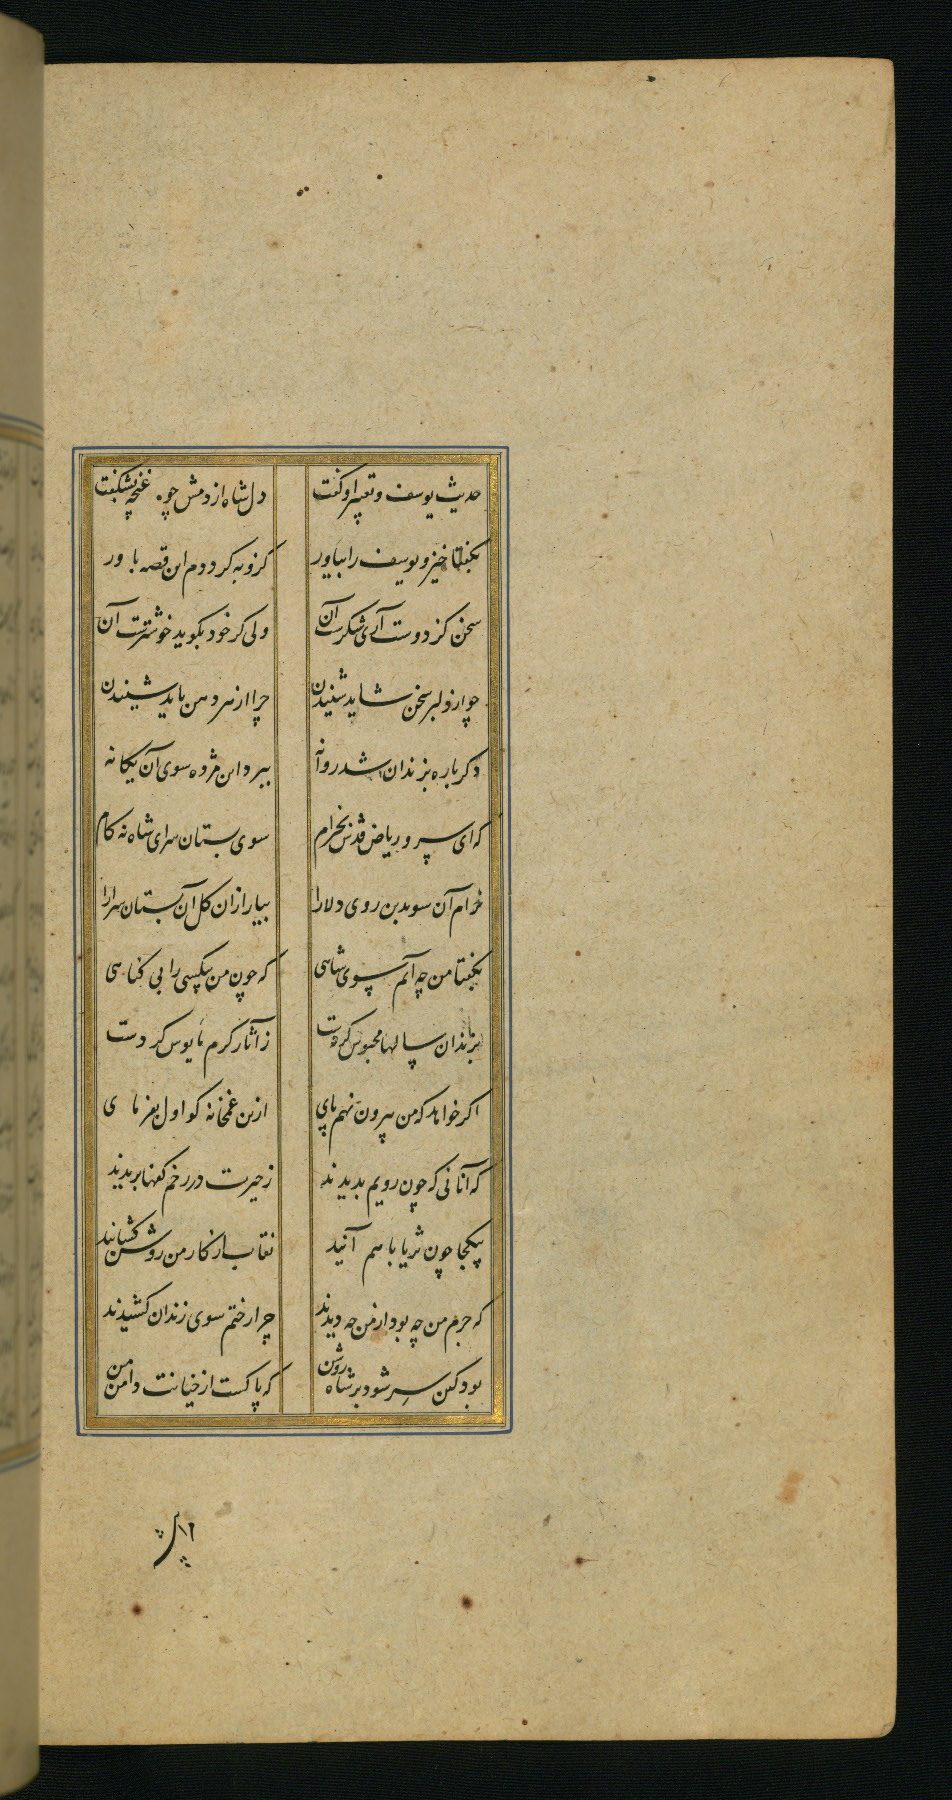 حدیث یوسف و تعبیر او گفت دل شاه از دمش چون غنچه بشکفت
بگفتا خیز و یوسف را بیاور کزو به گرددم این قصه باور
سخن کز دوست آری شکرست آن ولی گر خود بگوید خوشترست آن
چو از دلبر سخن شاید شنیدن چرا از هر دهن باید شنیدن
دگر باره بزندان شد روانه ببرد این مژده سوی آن یگانه
که ای سرو ریاض قدس بخرام سوی بستان سرای شاه نه گام
خرام آن سو بدین روی دلارا بیارا زان گل آن بستان سرا را
بگفتا من چه آیم سوی شاهی که چون من بیکسی را بی گناهی
بزندان سالها محبوس کردست ز آثار کرم مایوس کردست
اگر خواهد که من بیرون نهم پای ازین غمخانه گو اول بفرمای
که آنانی که چون رویم بدیدند ز حیرت در رخم کفها بریدند
بیکجا چون ثریا با هم آیند نقاب از کار من روشن گشایند
که جرم من چه بود از من چه دیدند چرا رختم سوی زندان کشیدند
بود کین سر شود بر شاه روشن که پاکست از خیانت دامن من